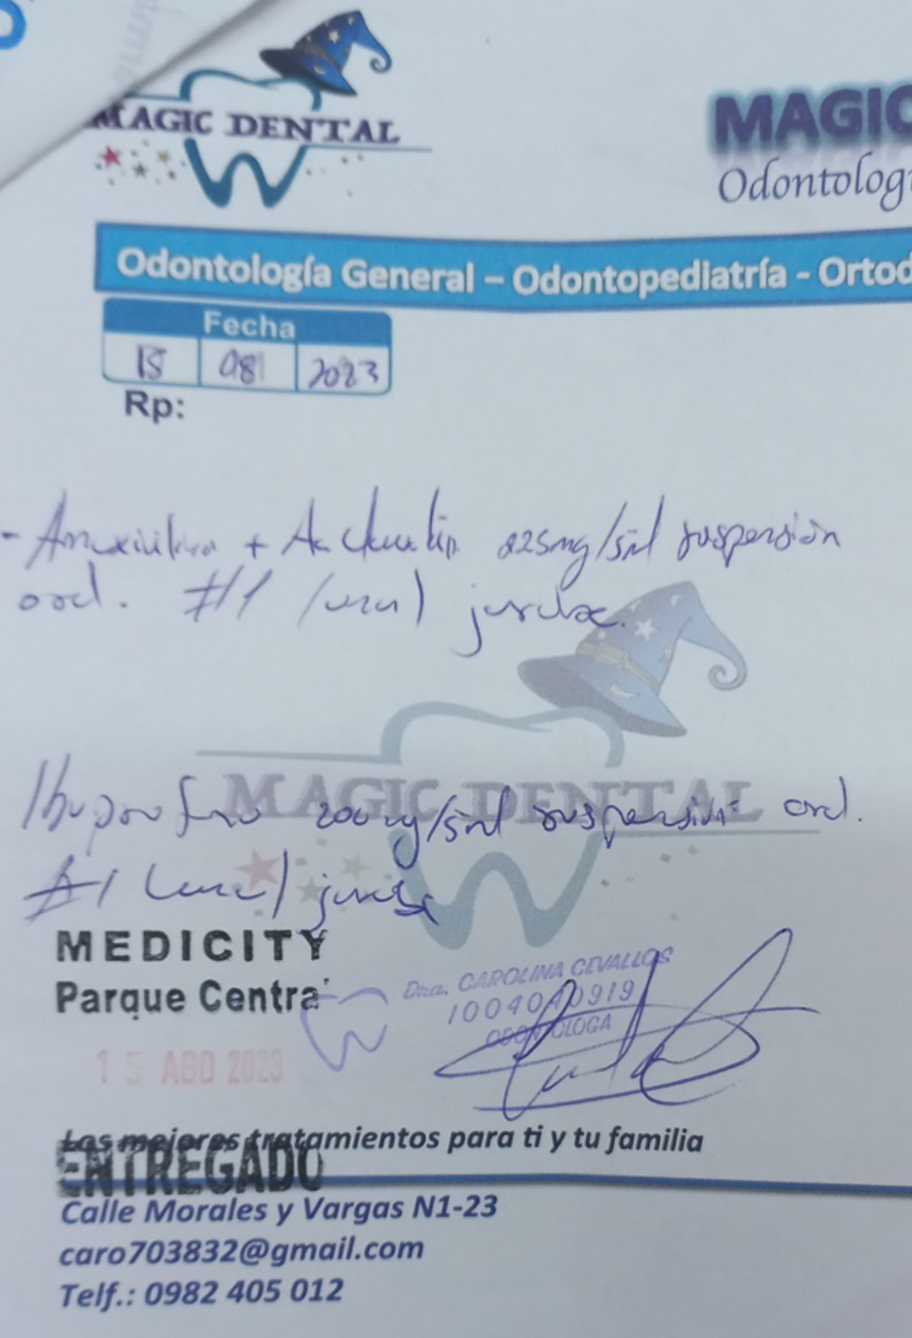 MAGIC DENTAL
MAGIC
Odontolog
Odontología General – Odontopediatría - Ortod
Fecha
15 08 2023
Rp:
- Amoxicilina + Ac clavulin 225mg/5ml suspensión
oral. #1 (una) jarabe.
MAGIC DENTAL
Ibuprofeno 200mg/5ml suspensión oral.
#1 (una) jarabe
MEDICITY
Parque Centra
Dra. CAROLINA CEVALLOS
1004040919
ODONTOLOGA
15 AGO 2023
Los mejores tratamientos para ti y tu familia
ENTREGADO
Calle Morales y Vargas N1-23
caro703832@gmail.com
Telf.: 0982 405 012